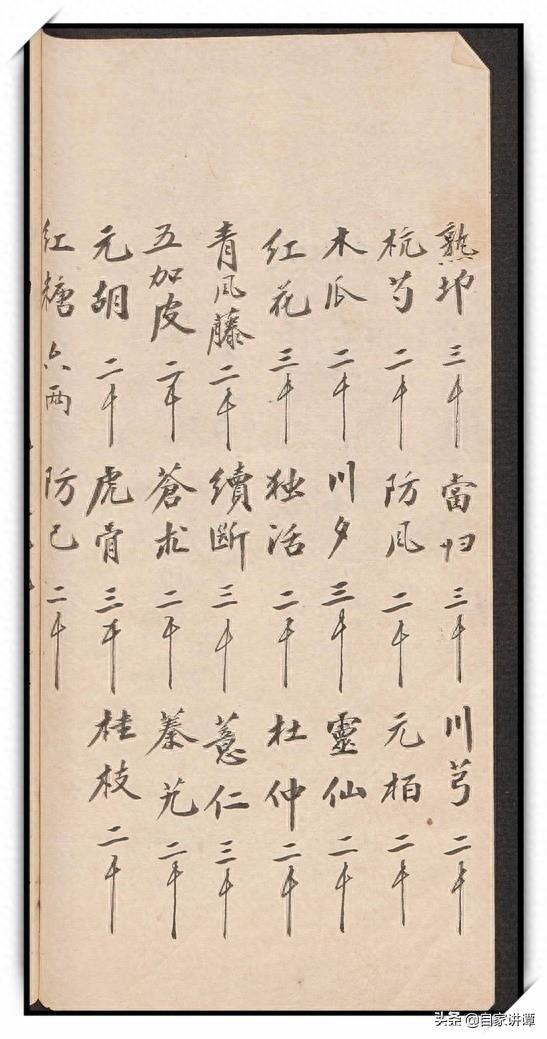 熟地 三钱 當归 三钱 川芎 二钱
杭芍 二钱 防风 二钱 元柏 二钱
木瓜 二钱 川夕 三钱 靈仙 二钱
红花 三钱 独活 二钱 杜仲 二钱
青风藤 二钱 續斷 三钱 薏仁 三钱
五加皮 二钱 蒼术 二钱 蓁艽 二钱
元胡 二钱 虎骨 三钱 桂枝 二钱
红糖 六两 防己 二钱
头条 @自家讲谭